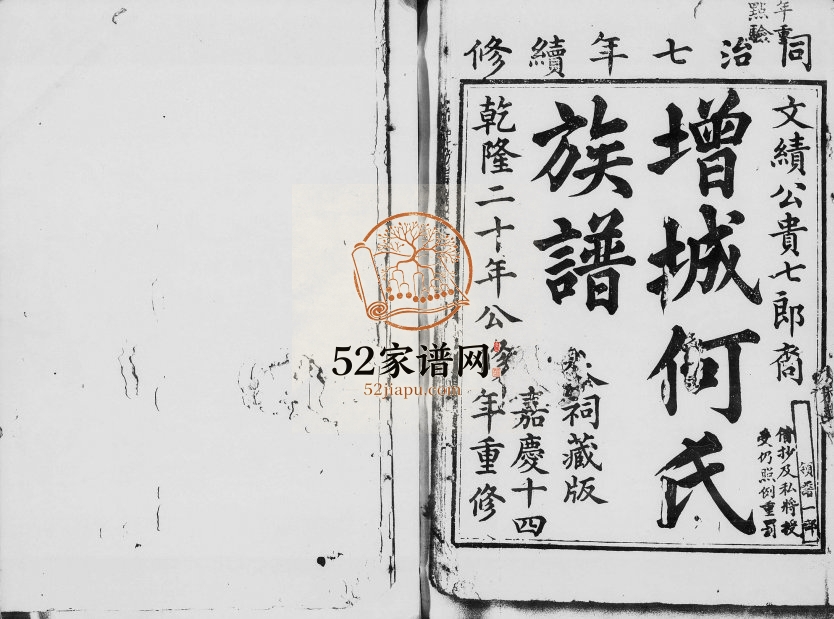 年重
點驗
同治七年續修
文績公貴七郎裔
增城何氏
族譜
祠藏版
乾隆二十年公修
嘉慶十四
年重修
領譜一部
借抄及私將授
受仍照例重罰
52家谱网
52jiapu.com